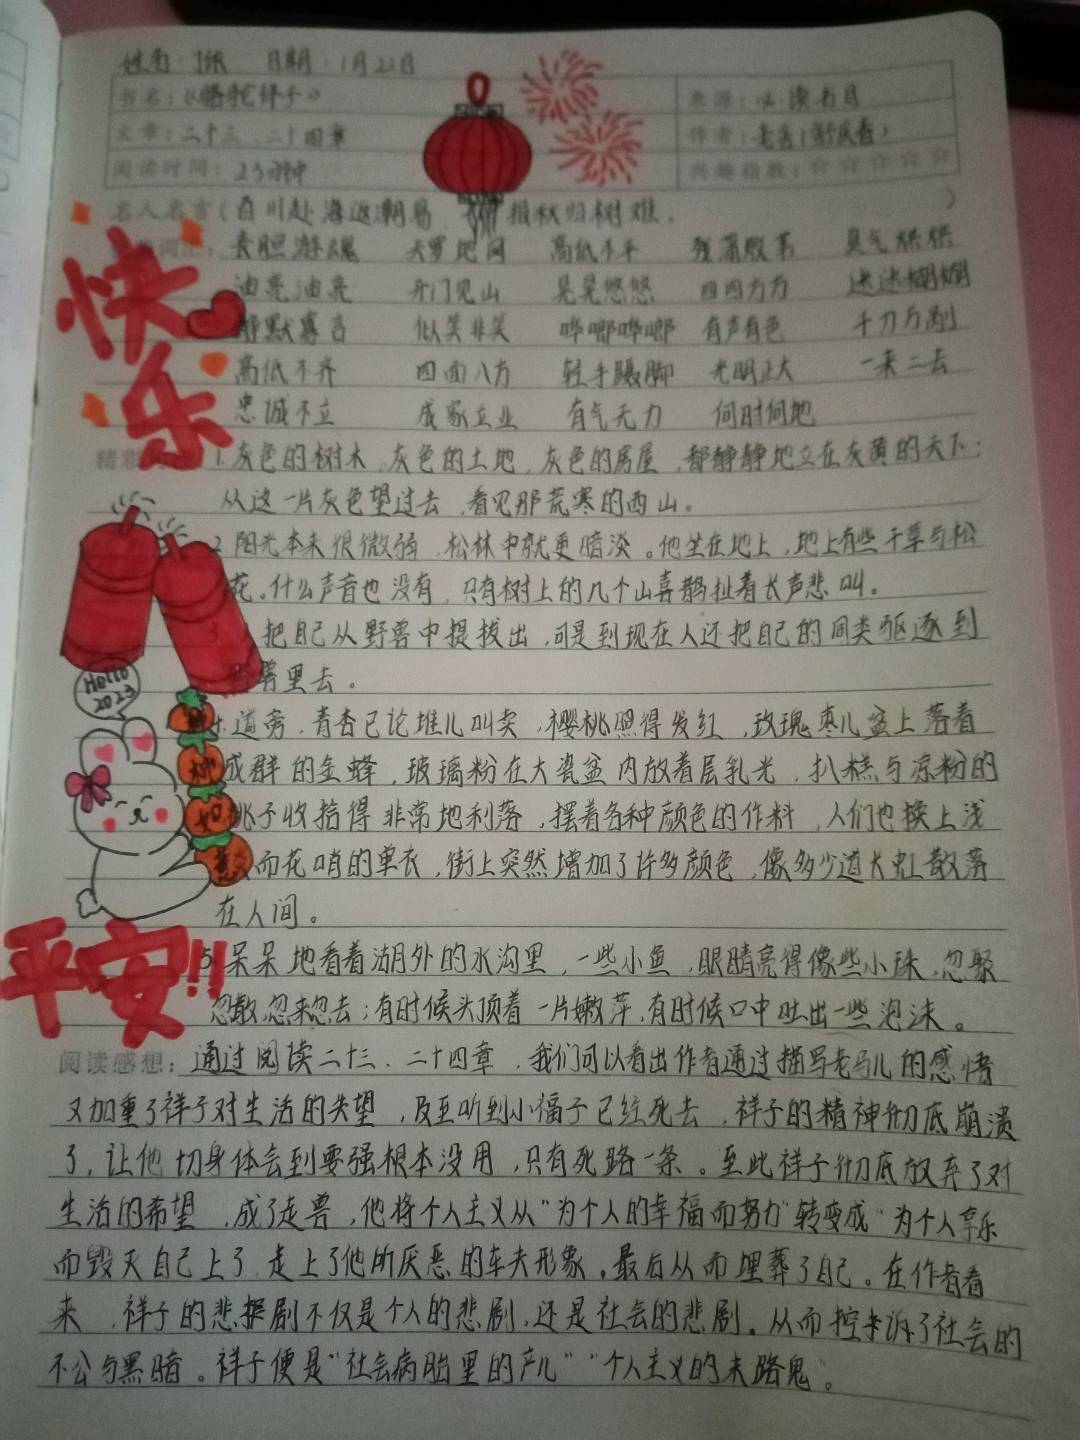 姓名: 日期: 1月21日
书名:《骆驼祥子》 来源: 必读书目
文章: 二十三、二十四章 作者: 老舍(舒庆春)
阅读时间: 23分钟 兴趣指数: ☆☆☆☆☆
名人名言( 百川赴海返潮易, 报秋归树难。 )
词汇: 丧胆游魂 天罗地网 高低不平 残蒲败苇 臭气烘烘
油亮油亮 开门见山 晃晃悠悠 四四方方 迷迷糊糊
快 静默寡言 似笑非笑 哗啷哗啷 有声有色 千刀万剐
高低不齐 四面八方 轻手蹑脚 光明正大 一来二去
乐 忠诚不立 成家立业 有气无力 何时何地
精彩 1.灰色的树木,灰色的土地,灰色的房屋,都静静地立在灰黄的天下;
从这一片灰色望过去,看见那荒寒的西山。
2.阳光本来很微弱,松林中就更暗淡。他坐在地上,地上有些干草与松
花。什么声音也没有,只有树上的几个山喜鹊扯着长声悲叫。
3.人把自己从野兽中提拔出,可是到现在人还把自己的同类驱逐到
野兽里去。
Hello
2023
4.道旁,青杏已论堆儿叫卖,樱桃照得发红,玫瑰枣儿盆上落着
成群的金蜂,玻璃粉在大瓷盆内放着层乳光,扒糕与凉粉的
挑子收拾得非常地利落,摆着各种颜色的作料,人们也换上浅
而花哨的单衣,街上突然增加了许多颜色,像多少道长虹散落
在人间。
柿柿如意
平安!!
5.呆呆地看着湖外的水沟里,一些小鱼,眼睛亮得像些小珠,忽聚
忽散,忽来忽去;有时候头顶着一片嫩萍,有时候口中吐出一些泡沫。
阅读感想: 通过阅读二十三、二十四章,我们可以看出作者通过描写老马儿的感情
又加重了祥子对生活的失望,及至听到小福子已经死去,祥子的精神彻底崩溃
了,让他切身体会到要强根本没用,只有死路一条。至此祥子彻底放弃了对
生活的希望,成了走兽,他将个人主义从“为个人的幸福而努力”转变成“为个人享乐
而毁灭自己上了,走上了他所厌恶的车夫形象。最后从而埋葬了自己。在作者看
来,祥子的悲剧不仅是个人的悲剧,还是社会的悲剧。从而控诉了社会的
不公与黑暗。祥子便是“社会病胎里的产儿”“个人主义的末路鬼”。